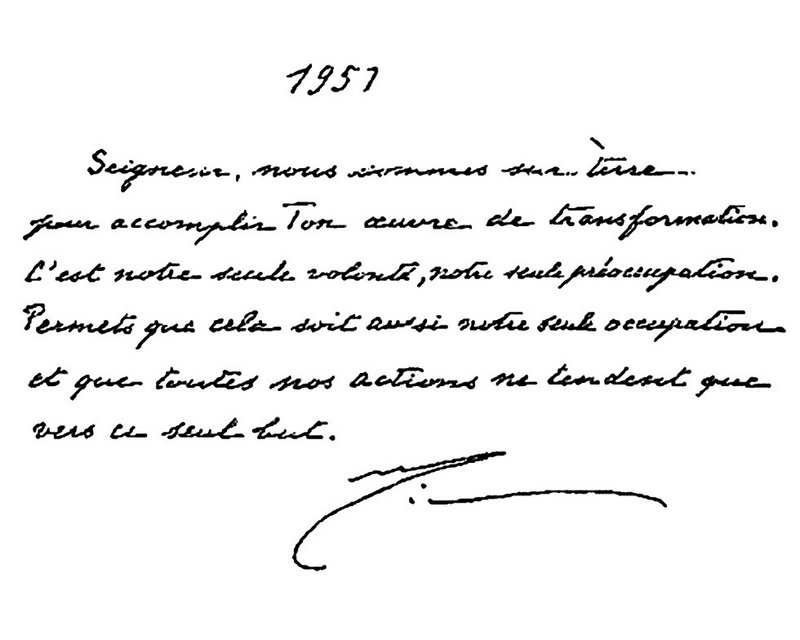 1951
Seigneur, nous sommes sur terre
pour accomplir Ton œuvre de transformation.
C'est notre seule volonté, notre seule préoccupation.
Permets que cela soit aussi notre seule occupation
et que toutes nos actions ne tendent que
vers ce seul but.